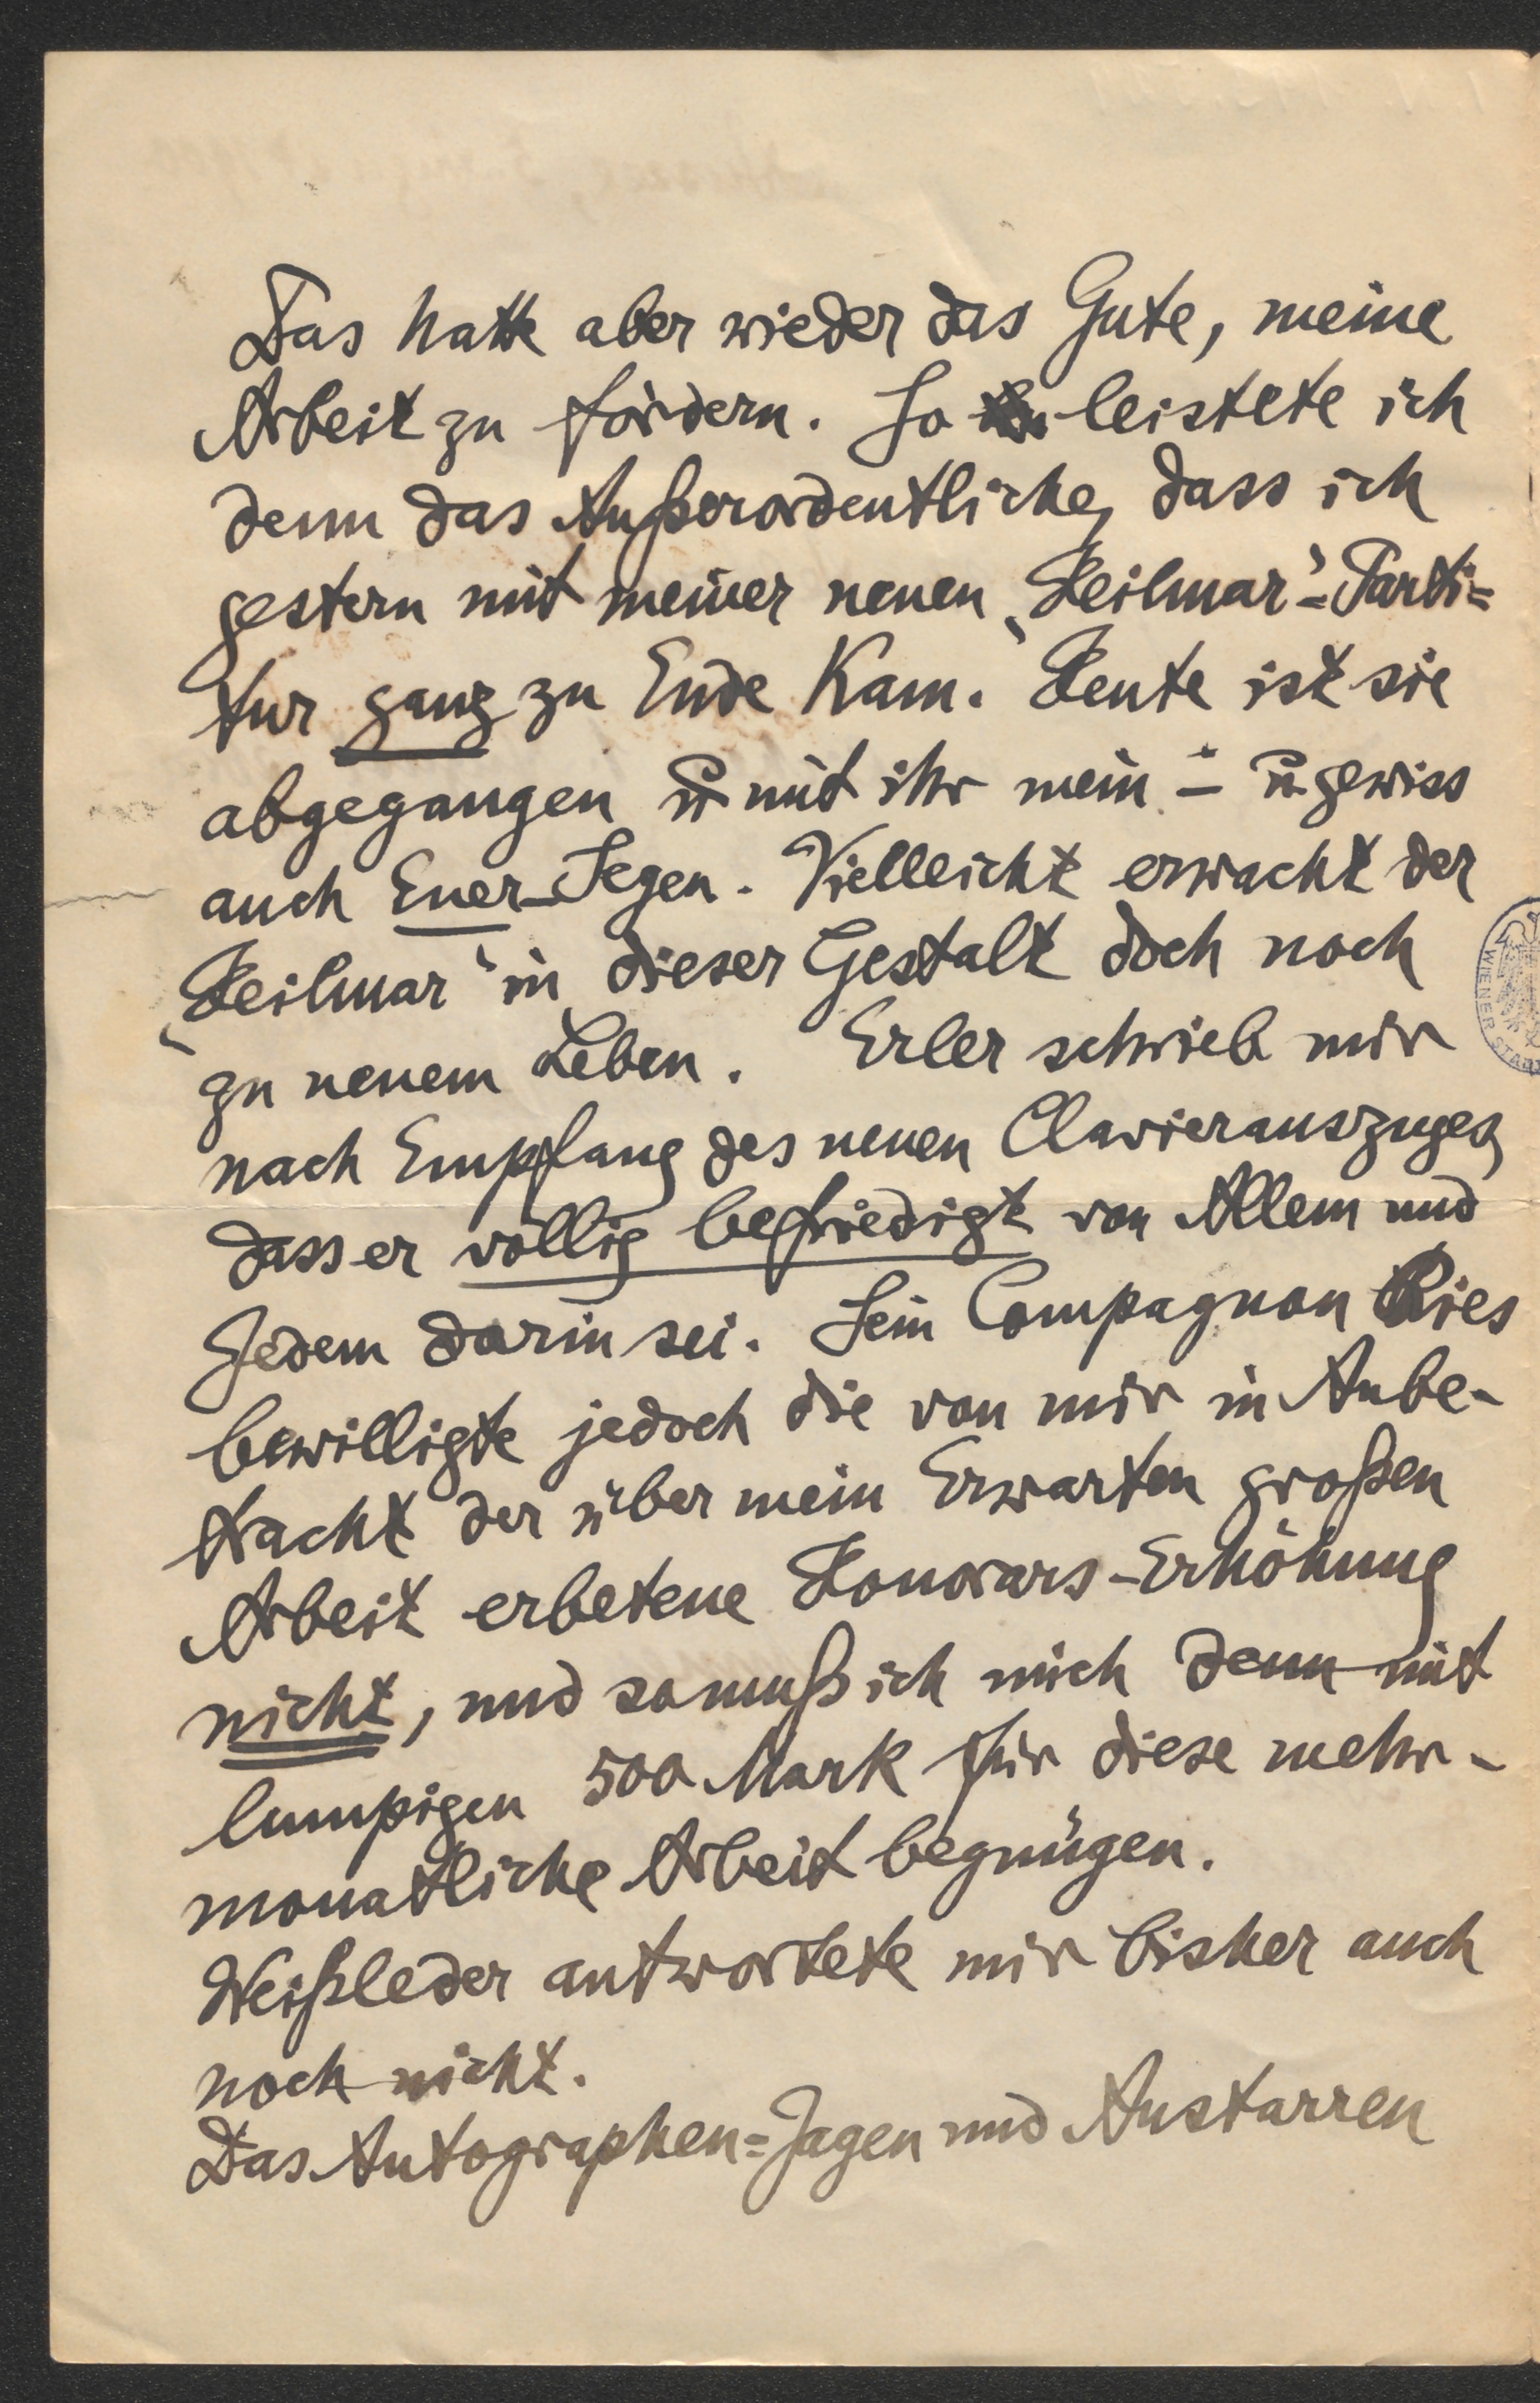 Das hatte aber wieder das Gute, meine
Arbeit zu fördern. So leistete ich
denn das Außerordentliche, dass ich
gestern mit meiner neuen „Heilmar“-Parti=
tur ganz zu Ende kam. Heute ist sie
abgegangen u. mit ihr mein – u. gewiss
auch Euer Segen. Vielleicht erwacht der
„Heilmar“ in dieser Gestalt doch noch
zu neuem Leben. Erler schrieb mir
nach Empfang des neuen Clavierauszuges,
dass er völlig befriedigt von Allem und
Jedem darin sei. Sein Compagnon Ries
bewilligte jedoch die von mir in Anbe-
tracht der über mein Erwarten großen
Arbeit erbetene Honorars-Erhöhung
nicht, und so muß ich mich denn mit
lumpigen 500 Mark für diese mehr-
monatliche Arbeit begnügen.
Weißleder antwortete mir bisher auch
noch nicht.
Das Autographen=Jagen und Anstarren
WIENER STADT